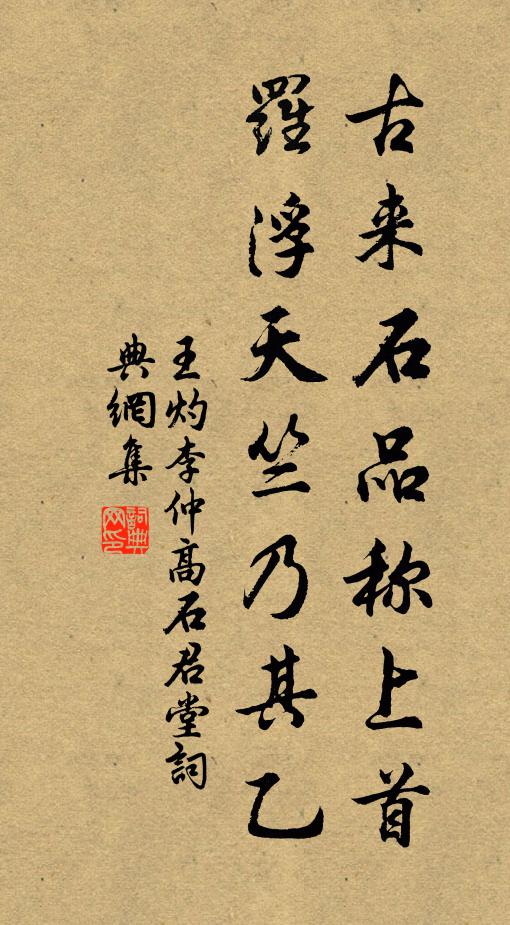 古来石品称上首
羅浮天竺乃其乙
王灼李仲高石君堂詞
典網集
詞典網印